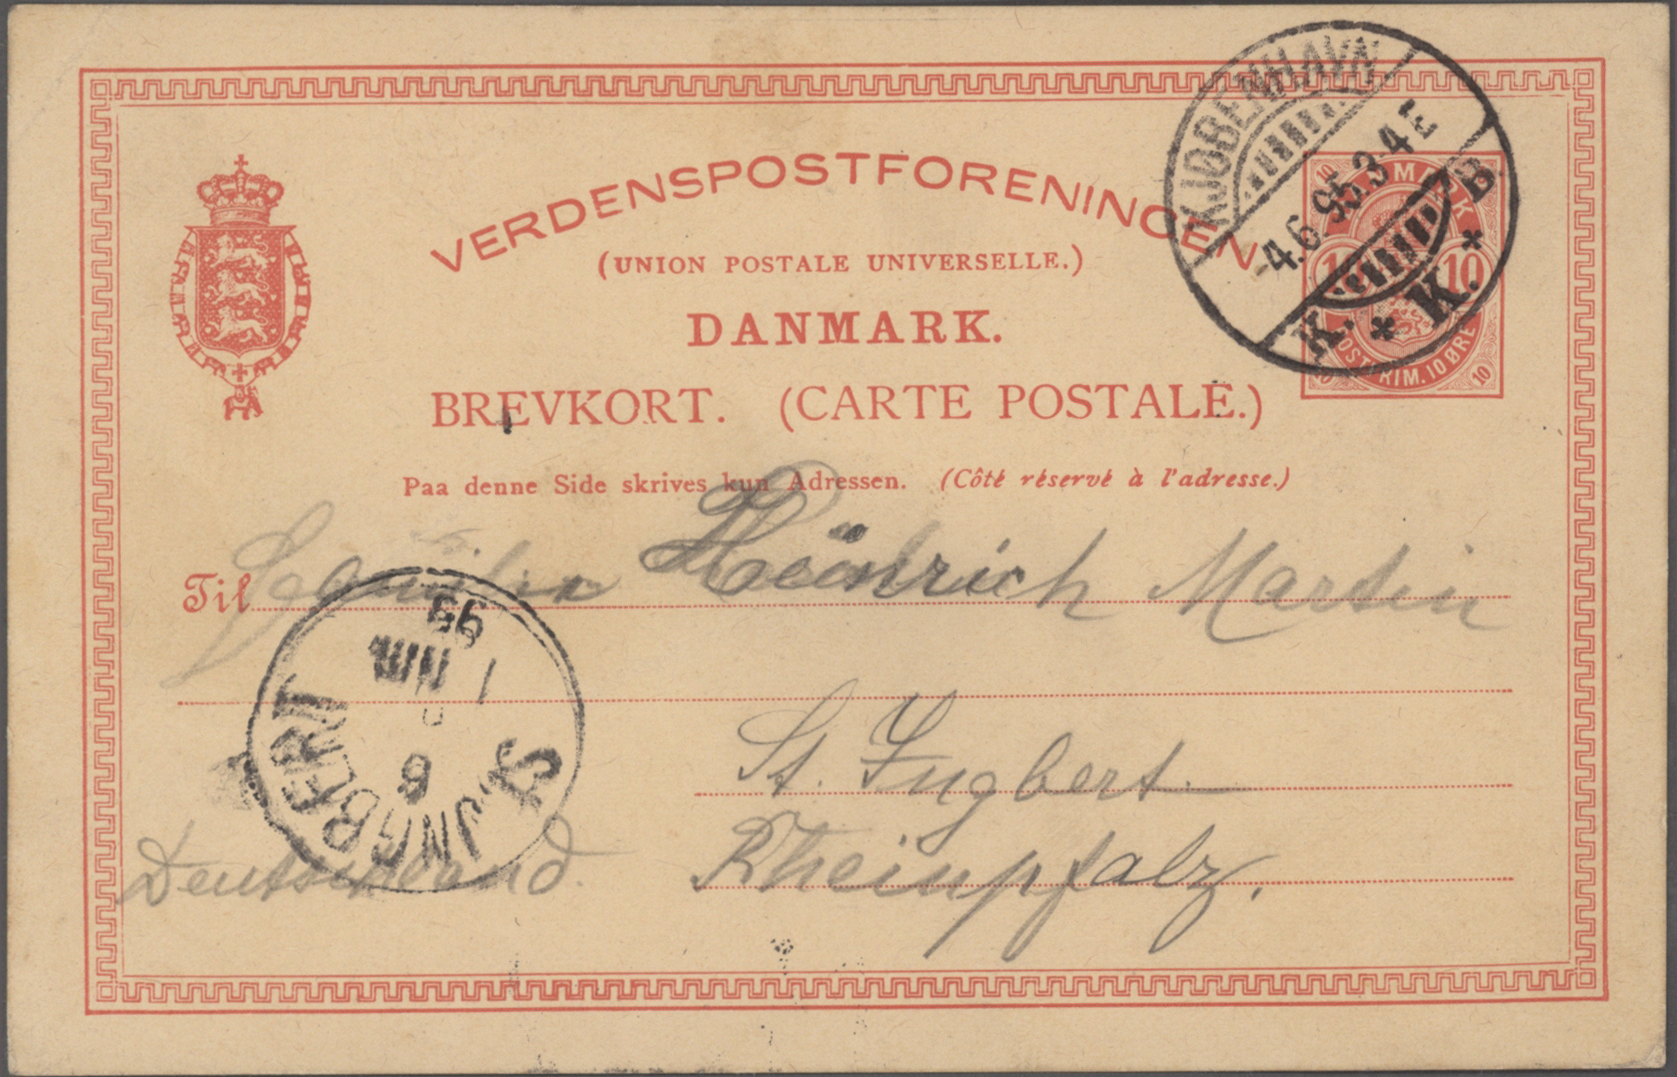 VERDENSPOSTFORENINGEN
(UNION POSTALE UNIVERSELLE.)
DANMARK.
BREVKORT. (CARTE POSTALE.)
Paa denne Side skrives kun Adressen. (Côté réservé à l'adresse.)
KJØBENHAVN
-4.6.95.3-4E
K. * K. * B.
DANMARK
10 10
POSTFRIM. 10 ØRE
Til Heinrich Martin
St. Ingbert
Rheinpfalz.
Deutschland.
ST. INGBERT
6
JUN.
95